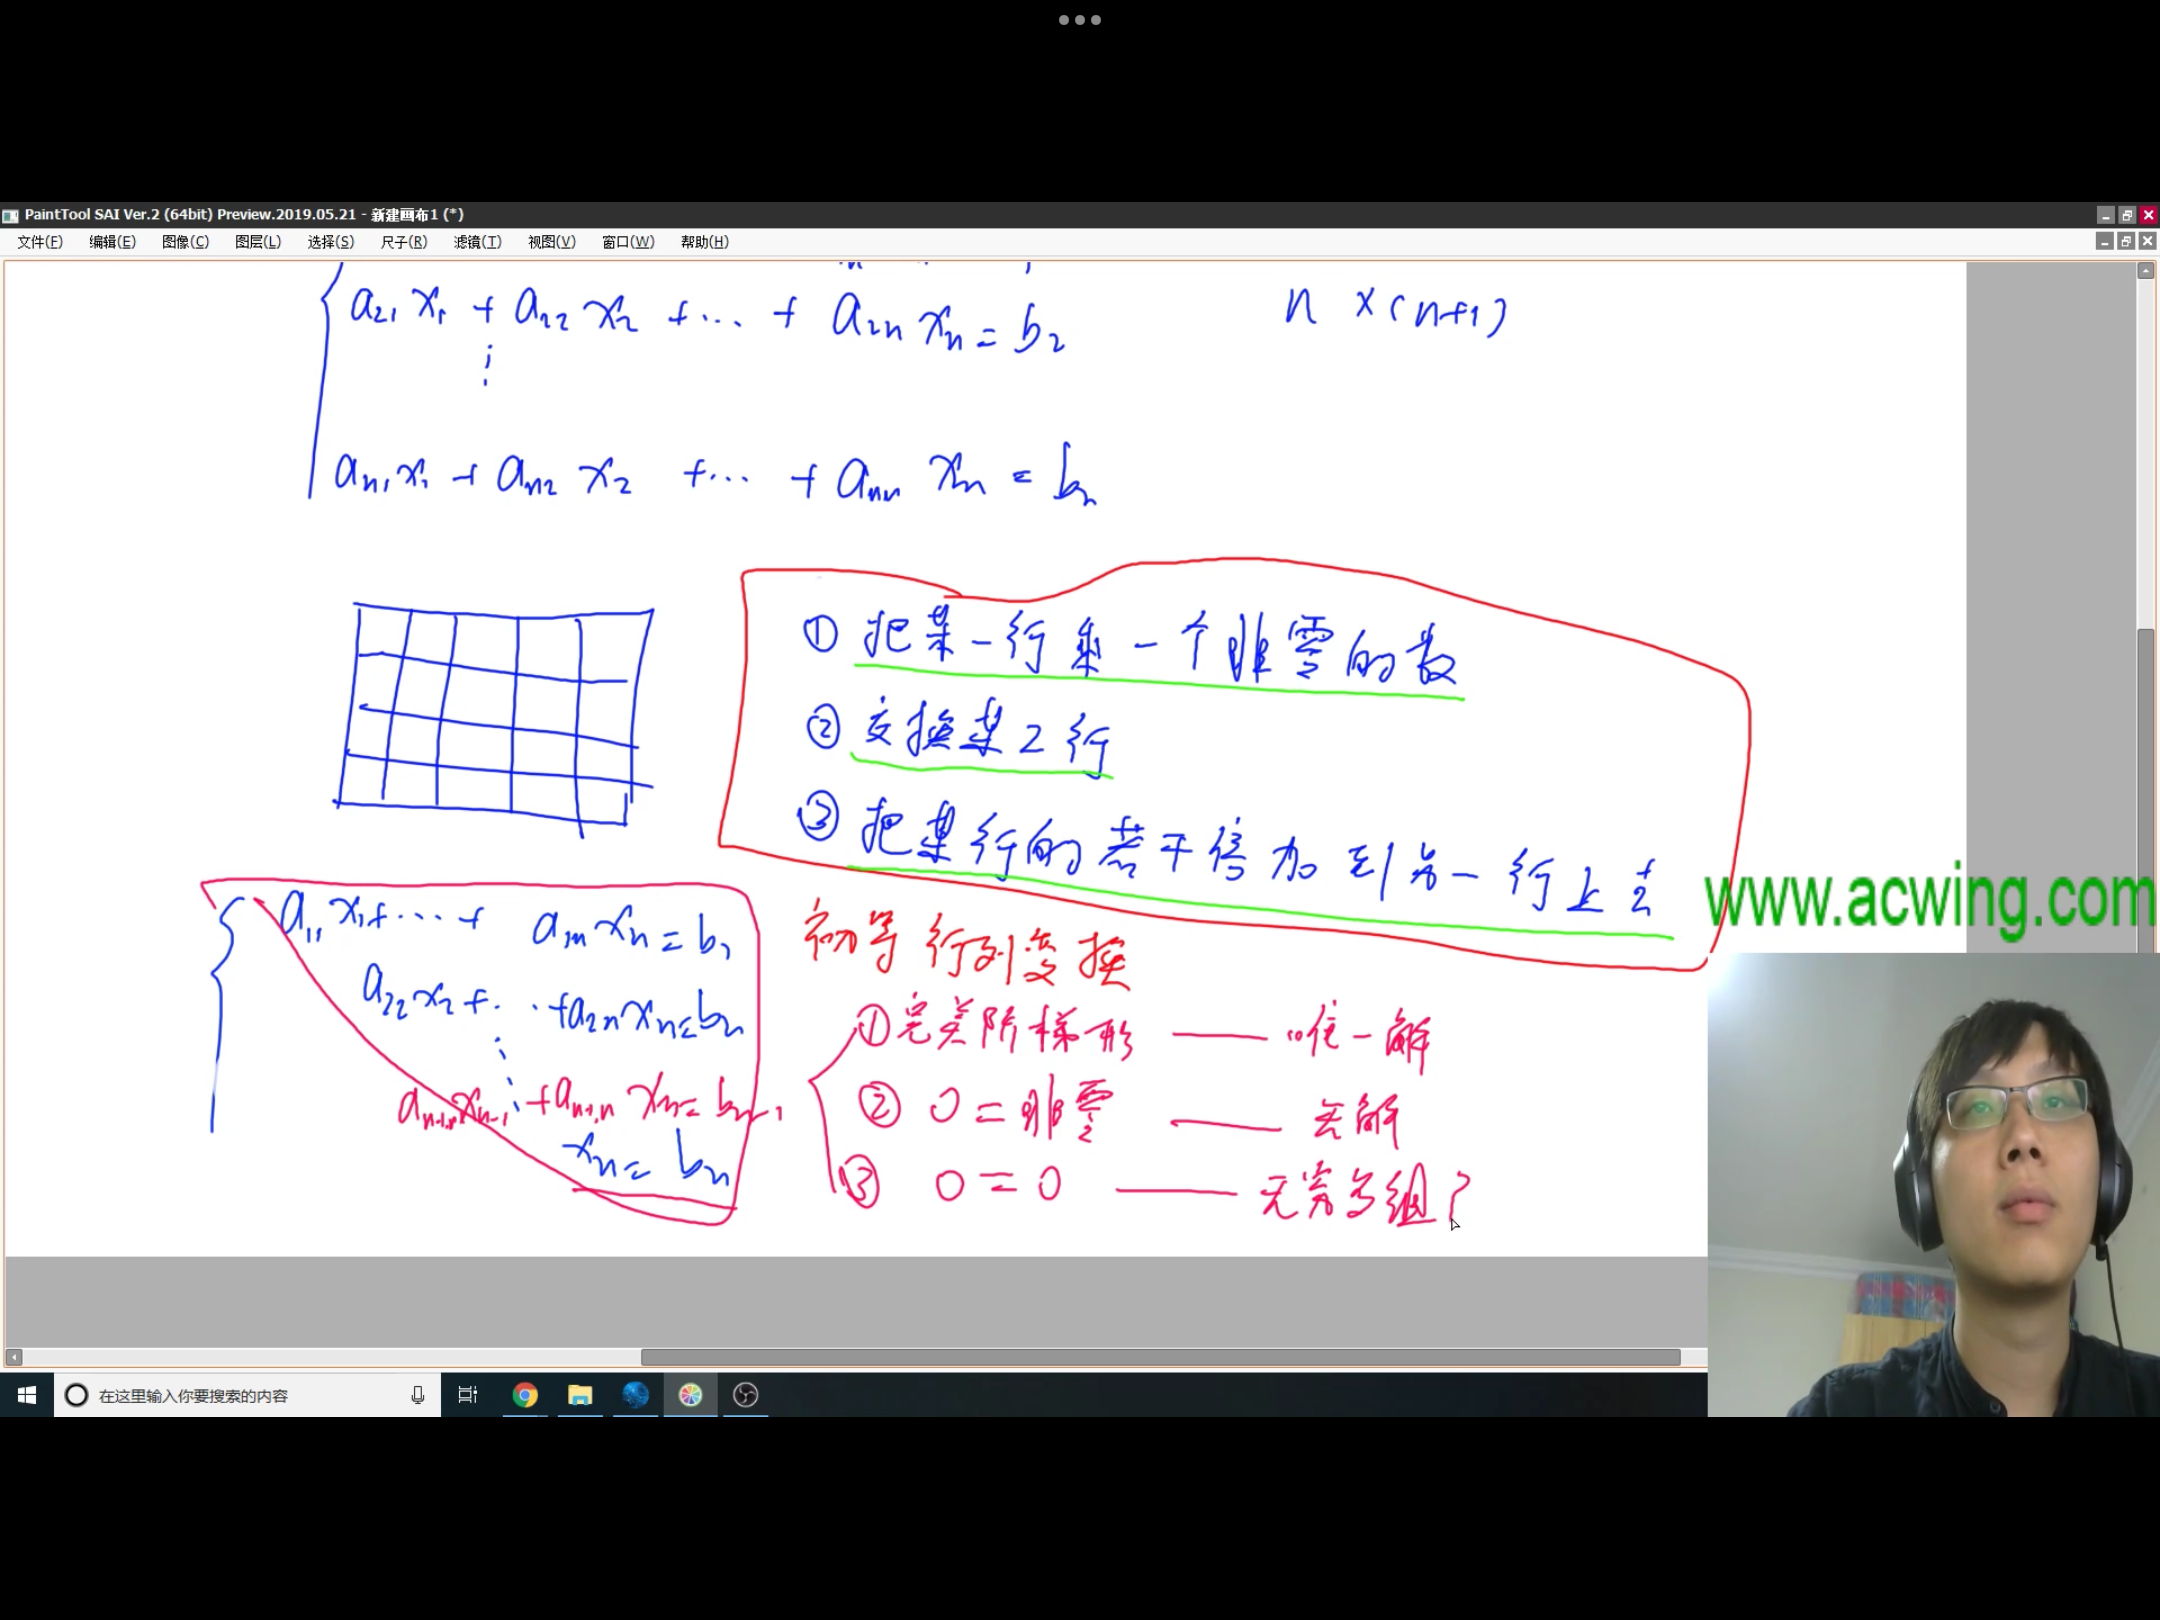 PaintTool SAI Ver.2 (64bit) Preview.2019.05.21 - 新建画布1 (*)
文件(F) 编辑(E) 图像(C) 图层(L) 选择(S) 尺子(R) 滤镜(T) 视图(V) 窗口(W) 帮助(H)
a₂₁ x₁ + a₂₂ x₂ + ... + a₂ₙ xₙ = b₂
n ×(n+1)
⋮
aₙ₁x₁ + aₙ₂ x₂ + ... + aₙₙ xₙ = bₙ
① 把某一行乘一个非零的数
② 交换某2行
③ 把某行的若干倍加到另一行上去
www.acwing.com
初等行列变换
a₁₁ x₁ + ... + a₁ₙ xₙ = b₁
a₂₂ x₂ + ... + a₂ₙ xₙ = bₙ
⋮
aₙ₋₁,ₙ₋₁ xₙ₋₁ + aₙ₋₁,ₙ xₙ = bₙ₋₁
xₙ = bₙ
①完美阶梯形 —— 唯一解
② 0 = 非零 —— 无解
③ 0 = 0 —— 无穷多组
在这里输入你要搜索的内容